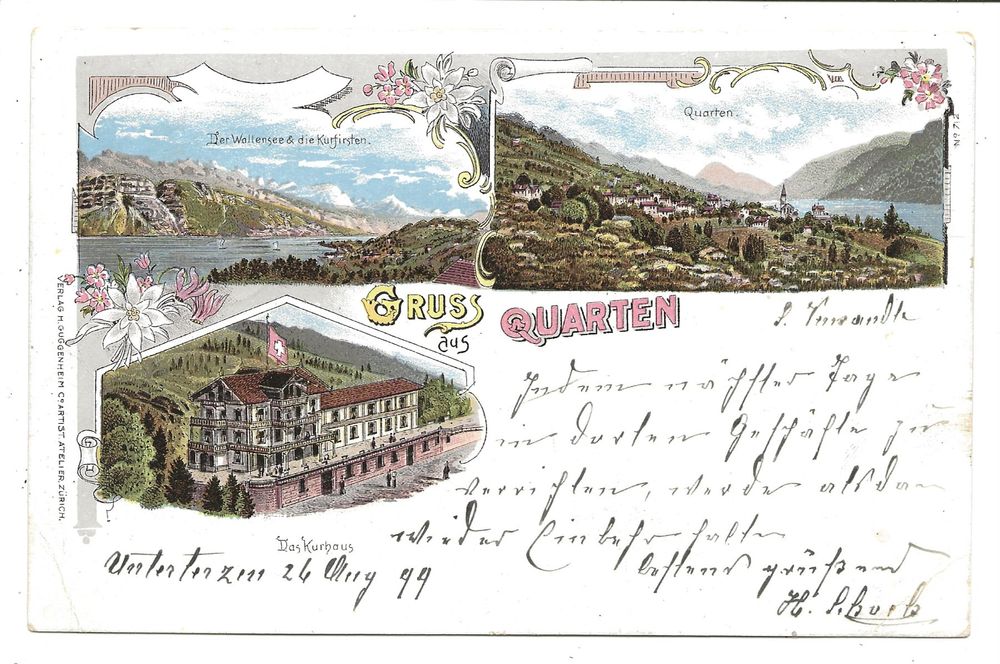 Der Wallensee & die Kurfirsten.
Quarten.
No 712
GRUSS
aus
QUARTEN
VERLAG H. GUGGENHEIM Co ARTIST. ATELIER, ZÜRICH.
Das Kurhaus
L. Verwandte
Indem nächster Tage
in dorten Geschäfte zu
verrichten, werde alsdan
wieder Einkehr halten
bestens grüßend
H. Schwob
Unterterzen 26 Aug 99